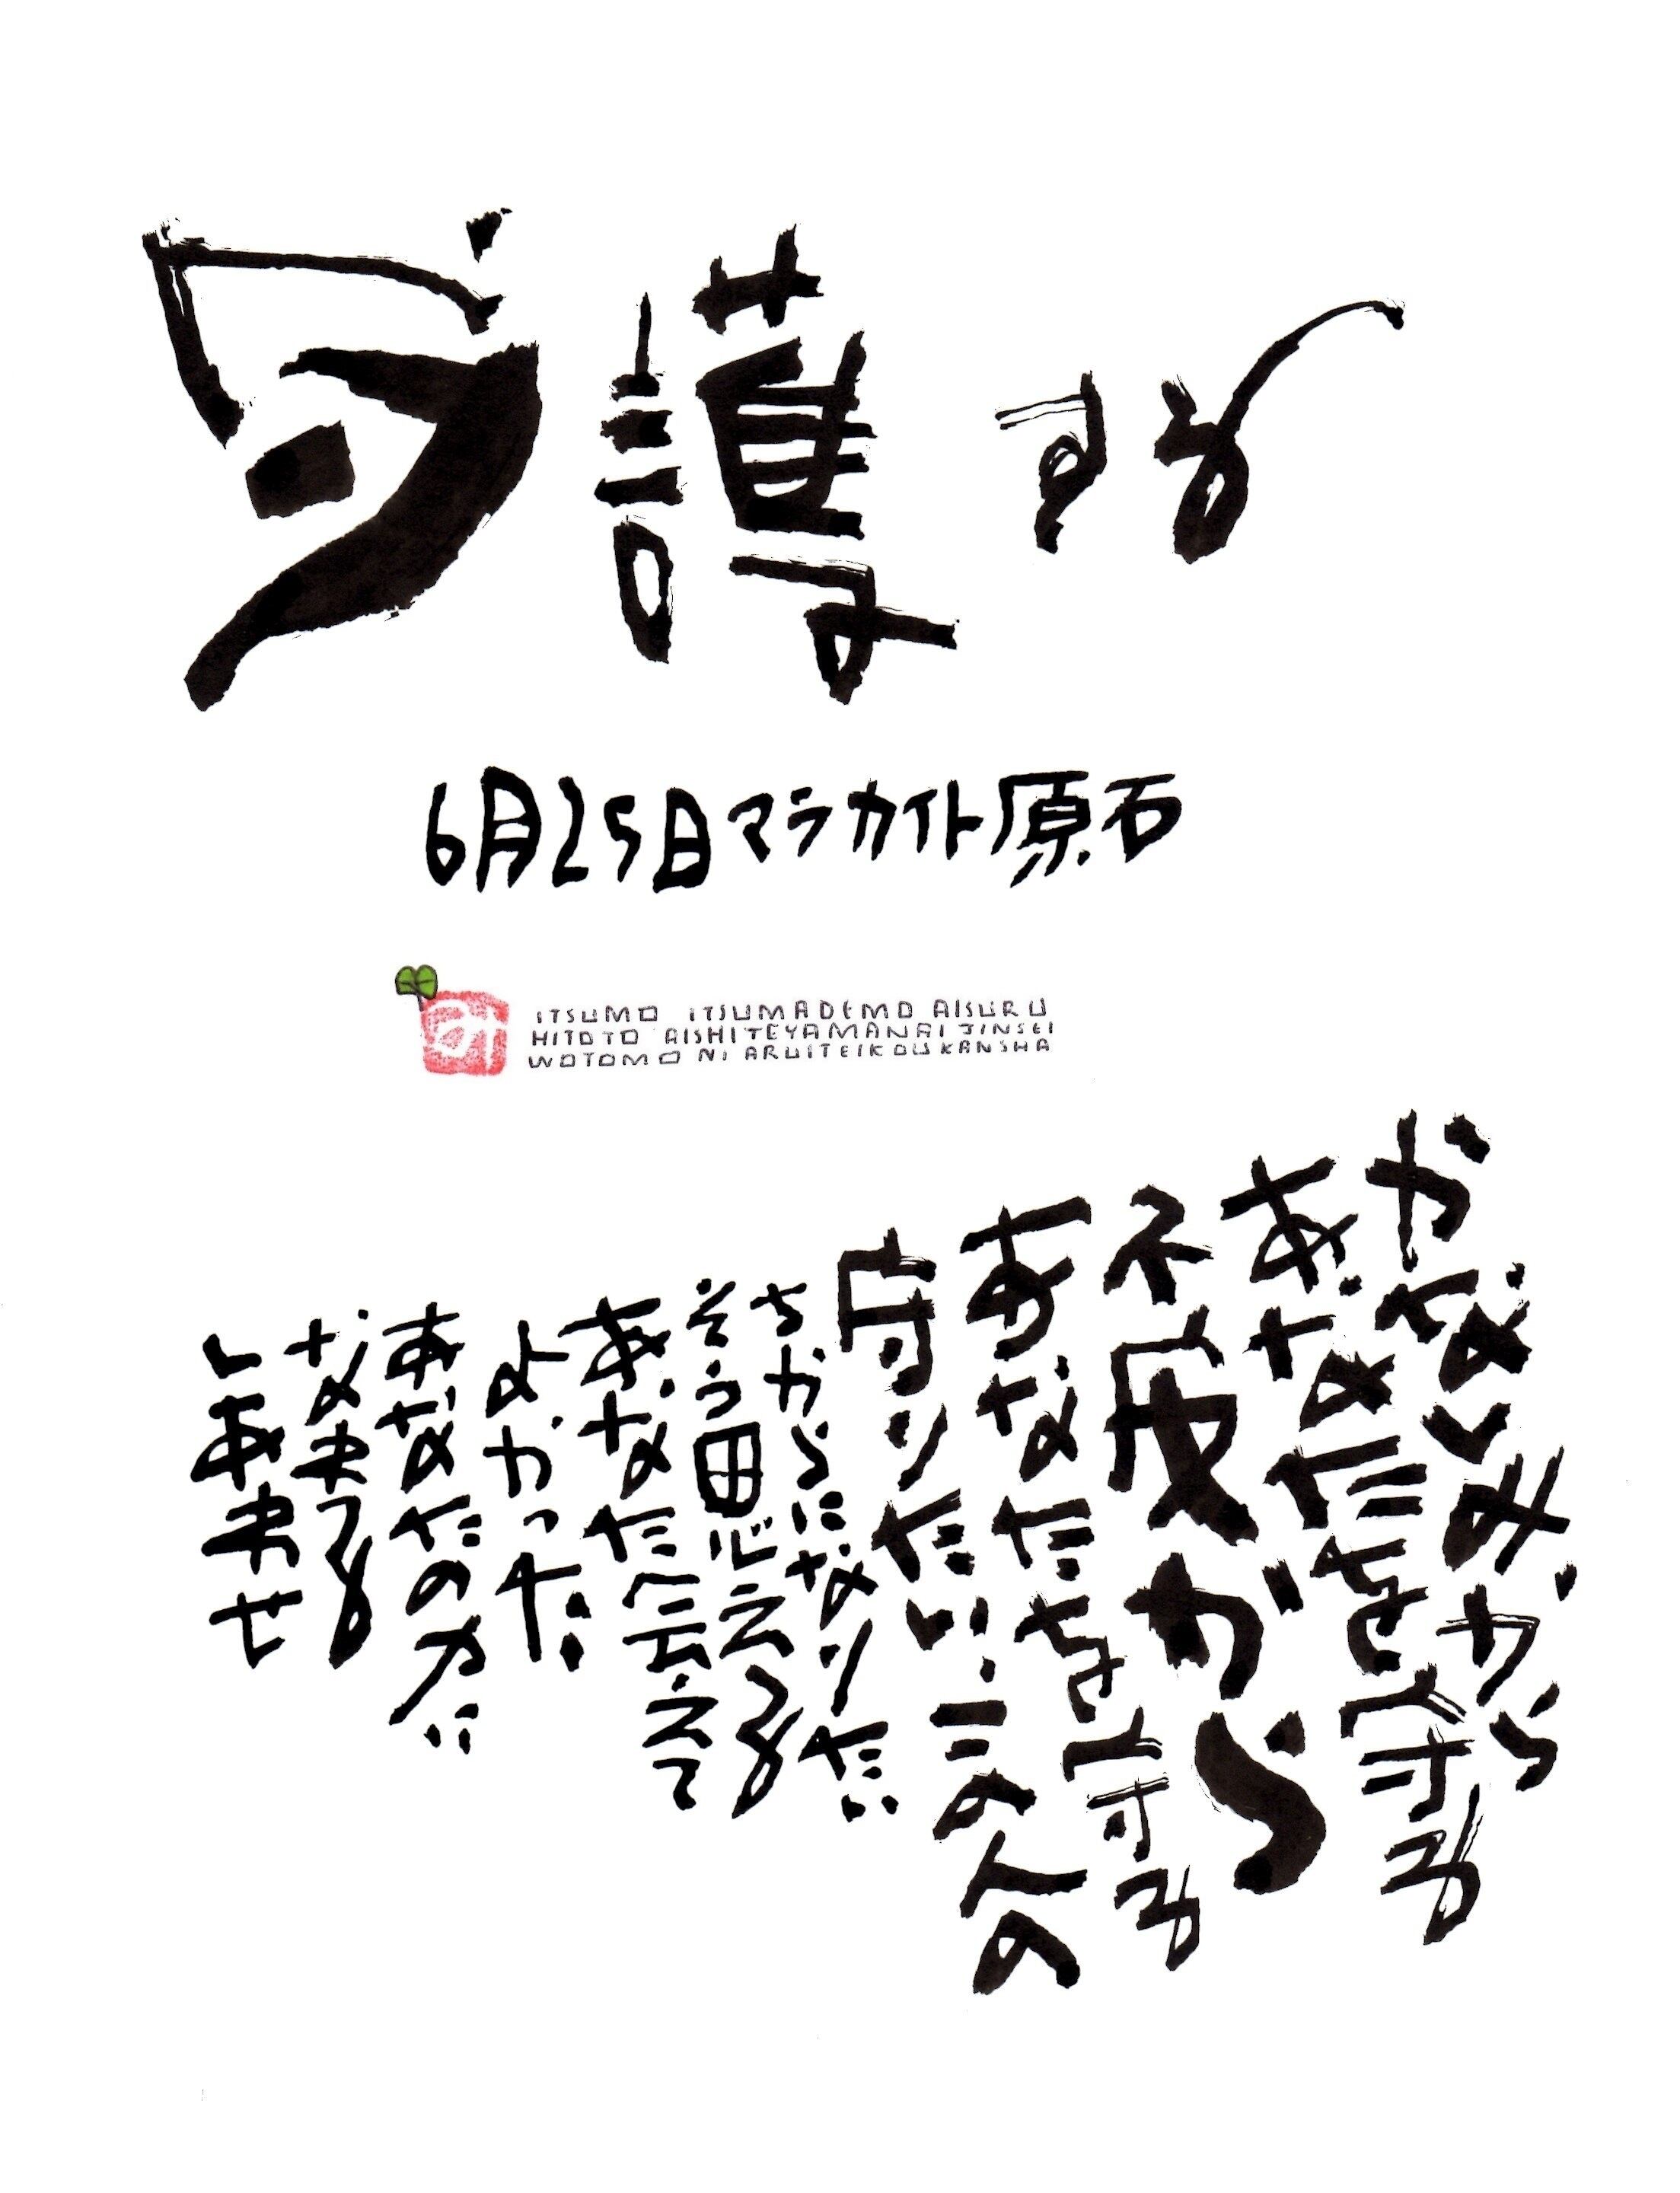 守護する
6月25日マラカイト原石
ITSUMO ITSUMADEMO AISURU
HITOTO AISHITEYAMANAI JINSEI
WOTOMO NI ARUITEIKOU KANSHA
かなしみから
あなたを守る
不安から
あなたを守る
守りたいこの人の
ちからになりたい
そう思える
あなたに会えて
よかった
あなたの力に
なれる
しあわせ